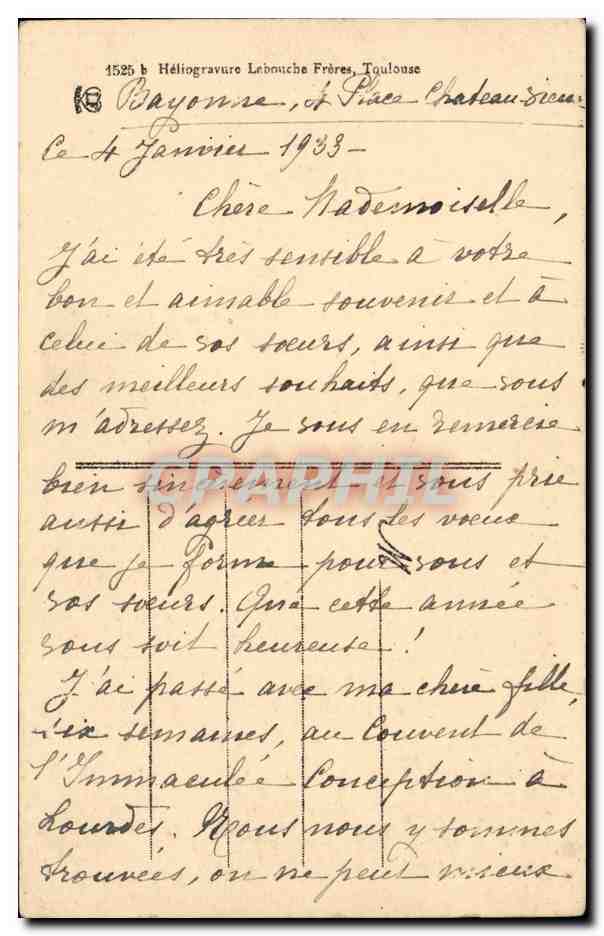 1525 b Héliogravure Labouche Frères, Toulouse
Bayonne, 4 Place Chateau-vieux
Ce 4 Janvier 1933-
Chère Mademoiselle,
J'ai été très sensible à votre
bon et aimable souvenir et à
celui de vos sœurs, ainsi que
des meilleurs souhaits, que vous
m'adressez. Je vous en remercie
bien sincèrement et vous prie
aussi d'agréer tous les voeux
que je forme pour vous et
vos sœurs. Que cette année
vous soit heureuse!
J'ai passé avec ma chère fille,
six semaines, au Couvent de
l'Immaculée Conception à
Lourdes. Nous nous y sommes
trouvées, on ne peut mieux
CPAPHIL